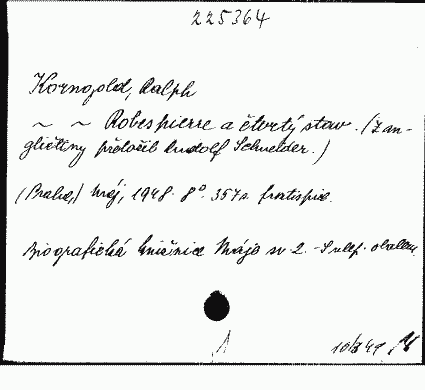 225364
Korngold, Ralph
~ ~ Robespierre a čtvrtý stav. (Z an-
gličtiny přeložil Rudolf Schneider.)
(Praha,) Máj, 1948. 8°. 357 s. frontispice.
Biografická knižnice Máje sv. 2. - S ilustr. obálkou
1